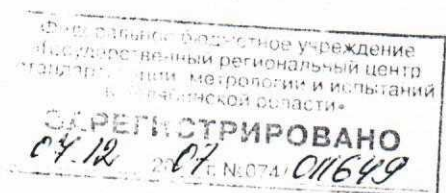 Федеральное бюджетное учреждение
«Государственный региональный центр
стандартизации, метрологии и испытаний
в Челябинской области»
ЗАРЕГИСТРИРОВАНО
04.12 2007 г. №074/011649